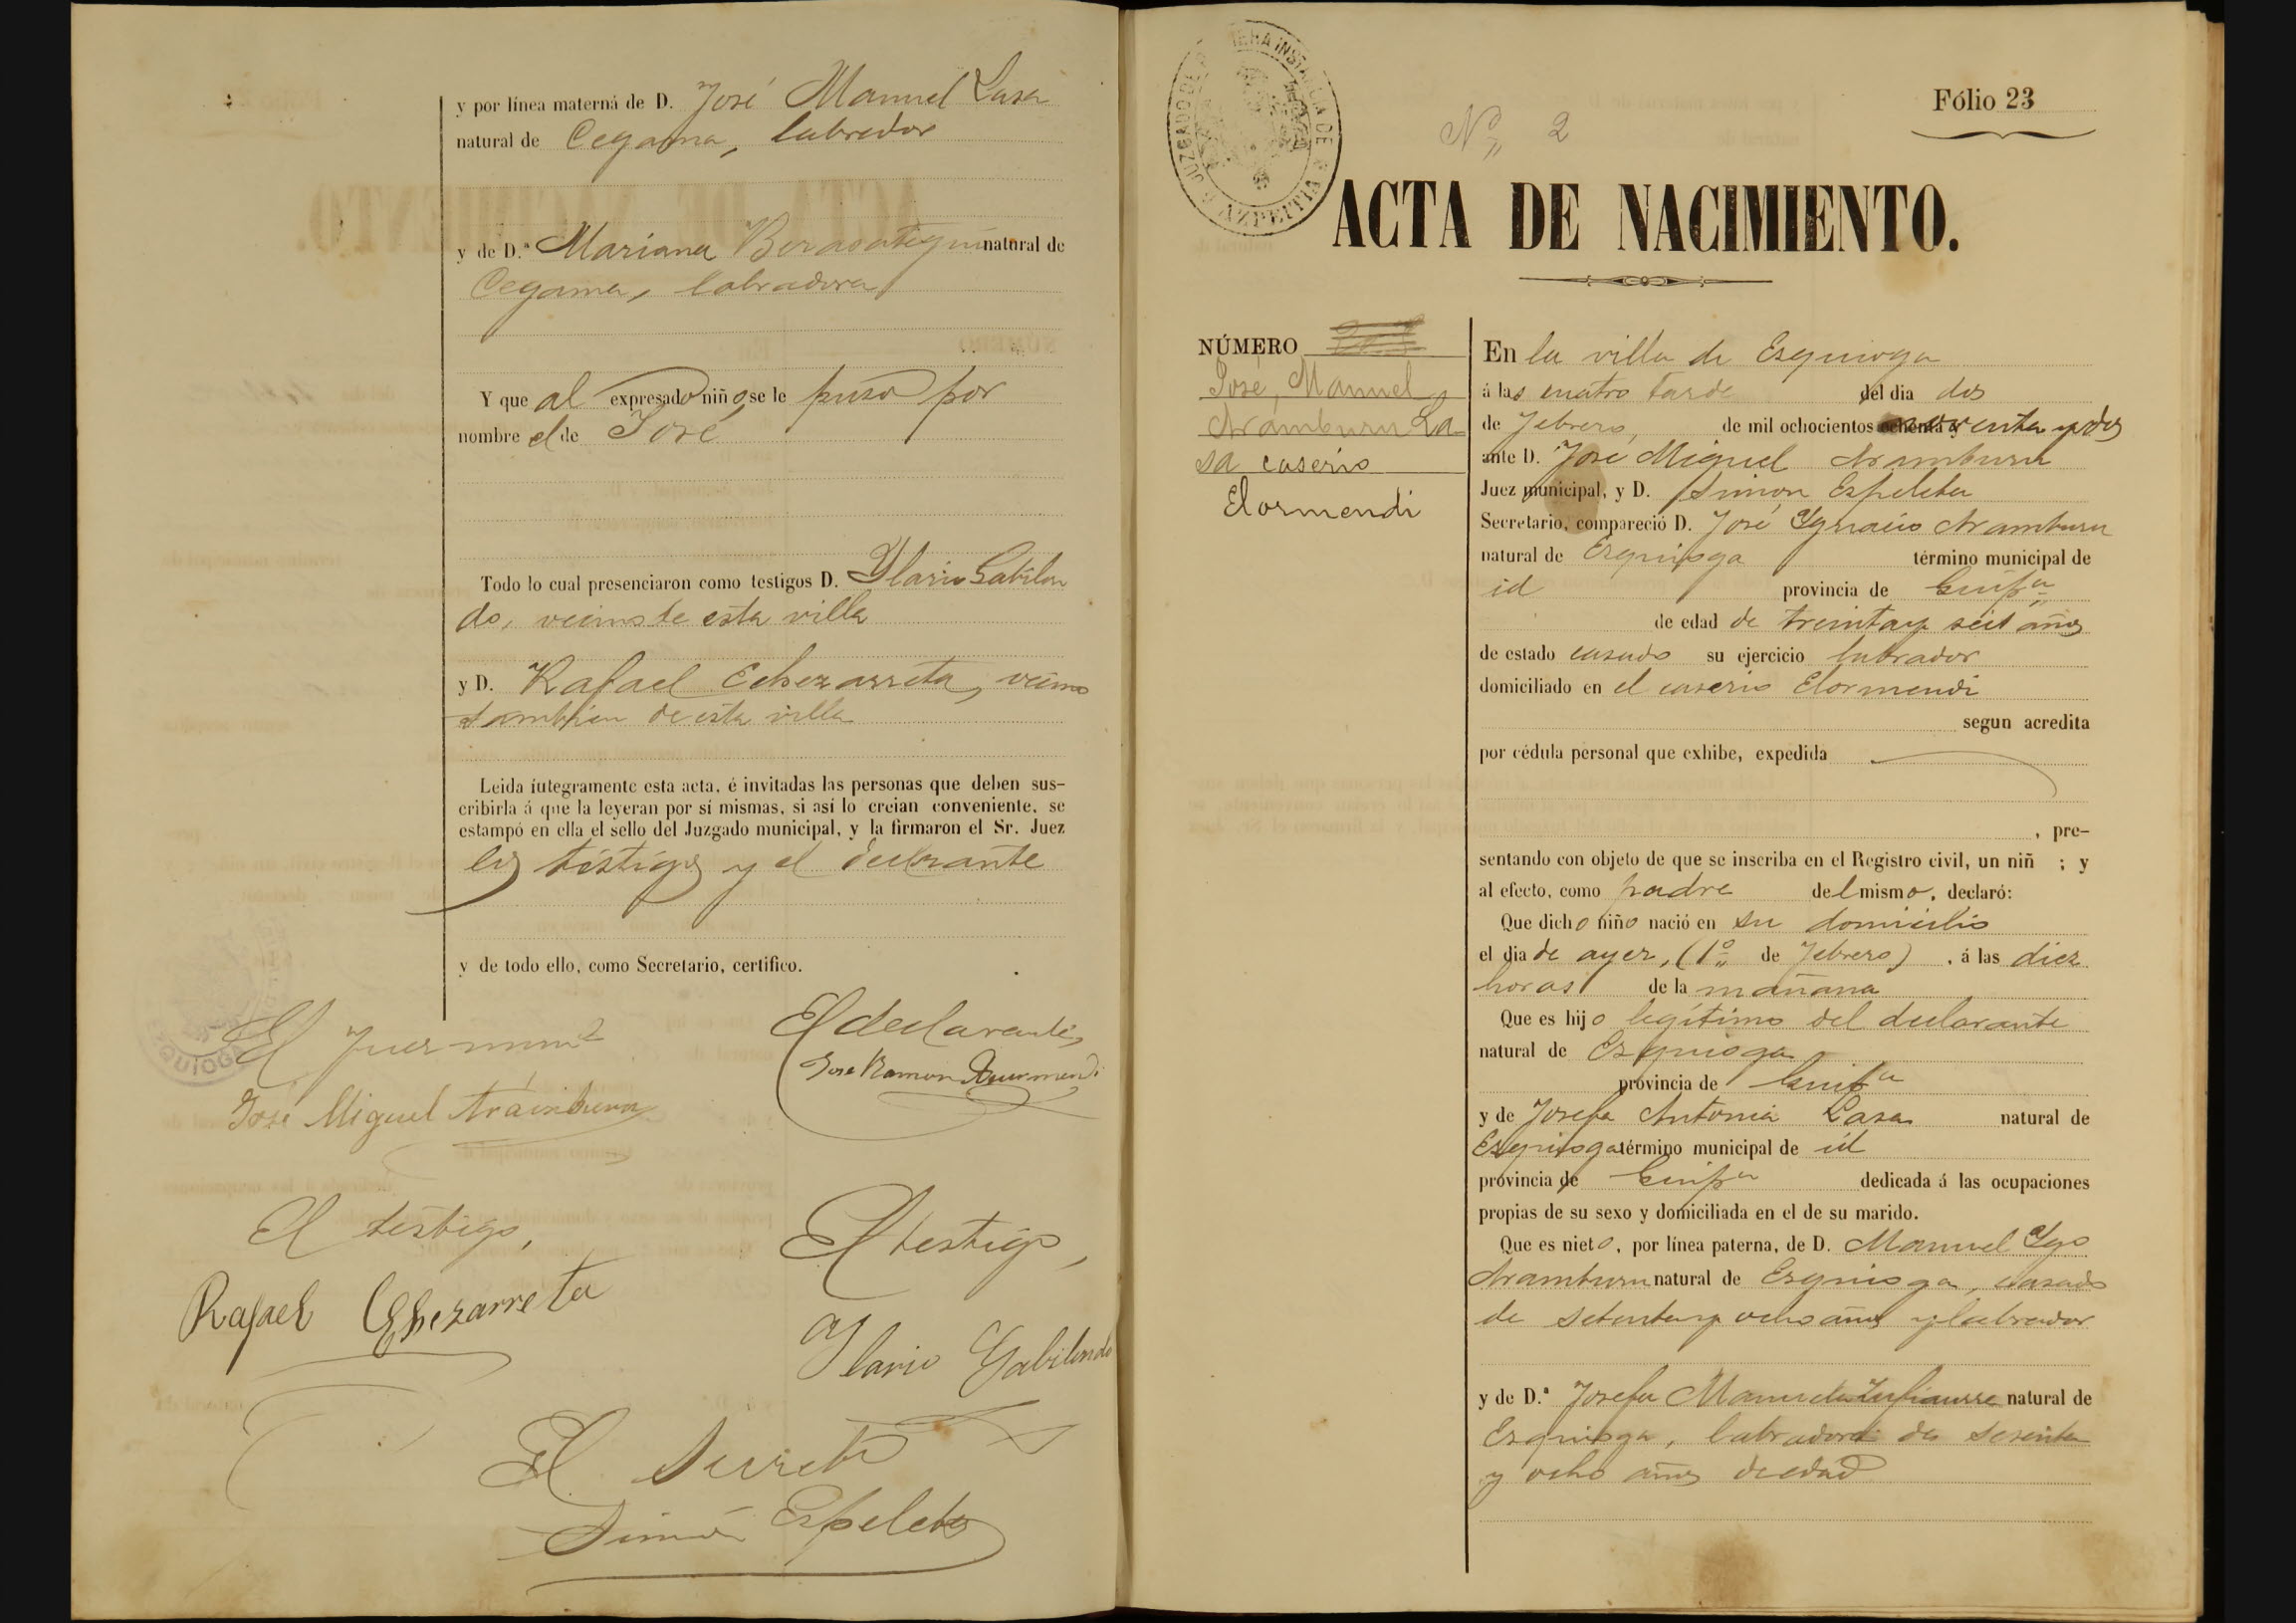 y por línea materna de D. José Manuel Lasa
natural de Cegama, labrador
y de D.ª Mariana Berasategui natural de
Cegama, labradora
Y que al expresado niño, se le puso por
nombre el de José
Todo lo cual presenciaron como testigos D. Ylario Gabilon
do, vecino de esta villa
y D. Rafael Echezarreta, vecino
tambien de esta villa
Leida íntegramente esta acta, é invitadas las personas que deben sus-
cribirla á que la leyeran por sí mismas, si así lo creian conveniente, se
estampó en ella el sello del Juzgado municipal, y la firmaron el Sr. Juez
los testigos y el declarante
y de todo ello, como Secretario, certifico.
El Juez mun.l
José Miguel Aramburu
El declarante,
José Ramon
El testigo,
Rafael Echezarreta
El testigo,
Ylario Gabilondo
El Secret.o
Simón Espeleta
JUZGADO DE PRIMERA INSTANCIA DE AZPEITIA
Nº 2
Fólio 23
ACTA DE NACIMIENTO.
NÚMERO
José, Manuel
Aramburu La
sa caserio
Elormendi
En la villa de Esquioga
á las cuatro tarde del dia dos
de Febrero, de mil ochocientos noventa y dos
ante D. José Miguel Aramburu
Juez municipal, y D. Simon Espeleta
Secretario, compareció D. José Ygnacio Aramburu
natural de Esquioga término municipal de
id provincia de Guip.ª
de edad de treinta y seis años
de estado casado su ejercicio labrador
domiciliado en el caserio Elormendi
segun acredita
por cédula personal que exhibe, expedida
, pre-
sentando con objeto de que se inscriba en el Registro civil, un niñ ; y
al efecto, como padre del mismo, declaró:
Que dicho niño nació en su domicilio
el dia de ayer, (1º de Febrero) , á las diez
horas de la mañana
Que es hijo legítimo del declarante
natural de Esquioga
provincia de Guip.ª
y de Josefa Antonia Lasa natural de
Esquioga término municipal de id
provincia de Guip.ª dedicada á las ocupaciones
propias de su sexo y domiciliada en el de su marido.
Que es nieto, por línea paterna, de D. Manuel Ygo
Aramburu natural de Esquioga, casado
de setenta y ocho años y labrador
y de D.ª Josefa Manuela natural de
Esquioga, labradora de sesenta
y ocho años de edad